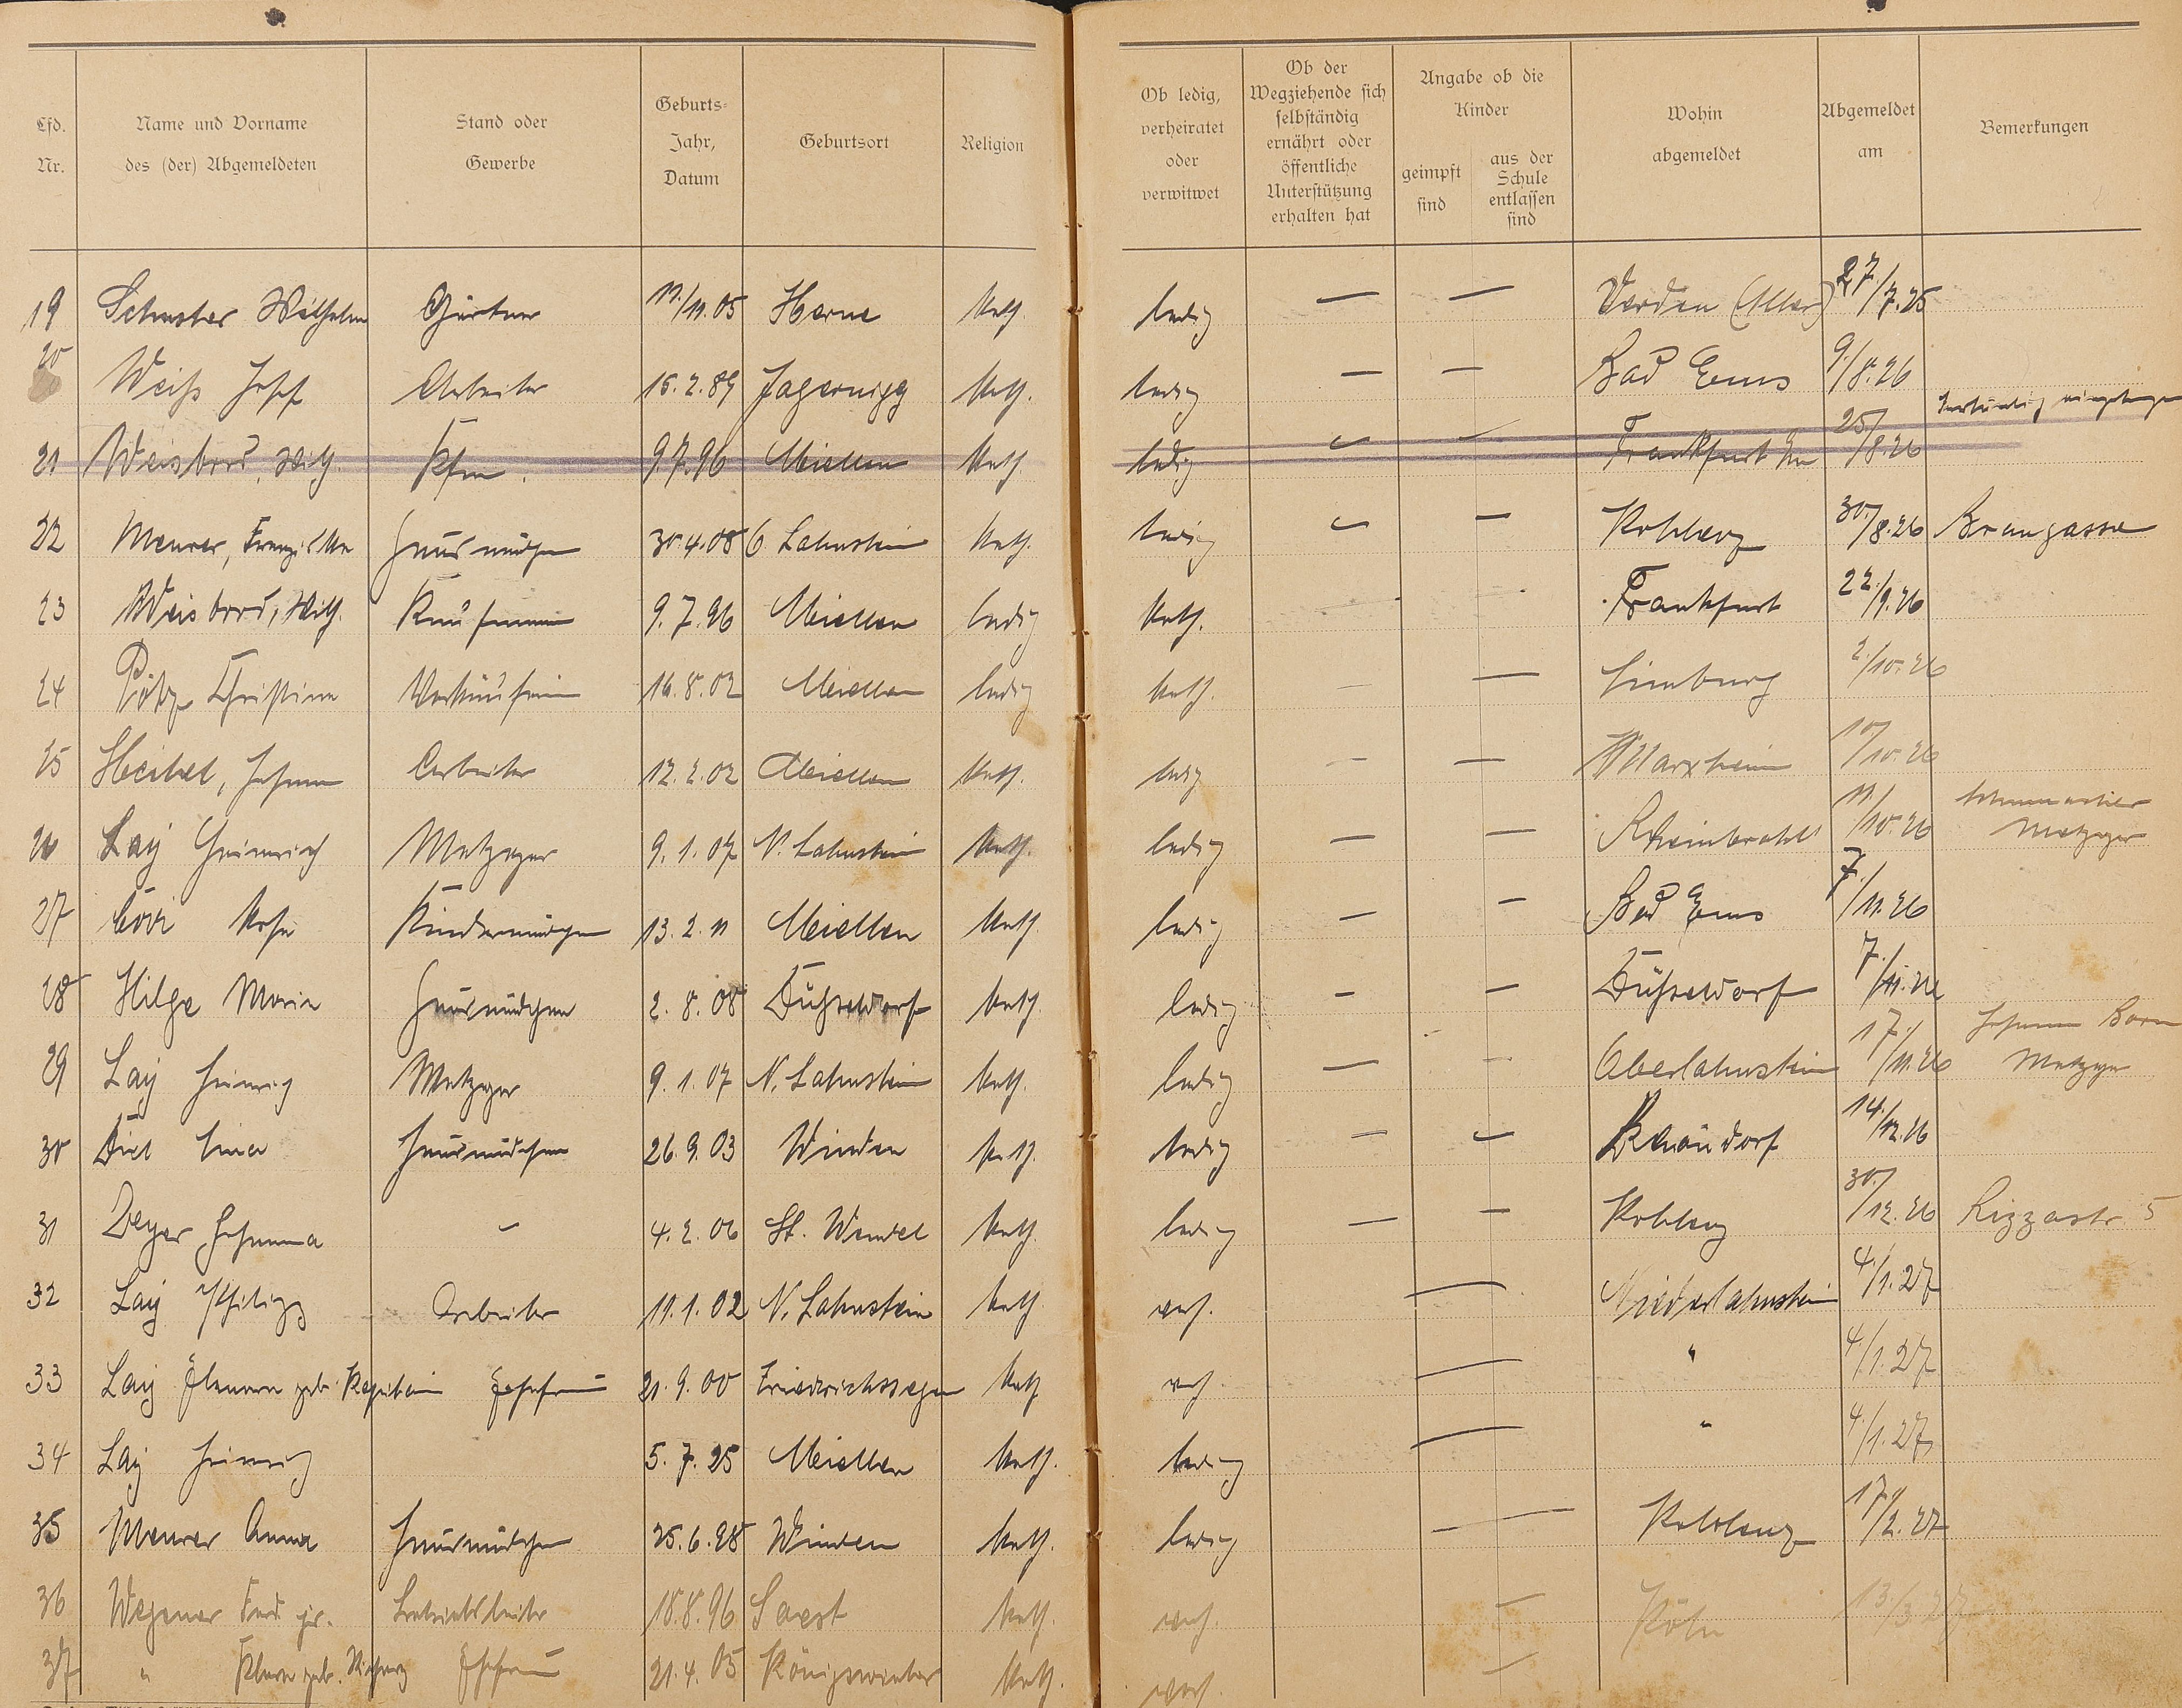 Lfd. Nr. | Name und Vorname des (der) Abgemeldeten | Stand oder Gewerbe | Geburts-Jahr, Datum | Geburtsort | Religion | Ob ledig, verheiratet oder verwitwet | Ob der Wegziehende sich selbständig ernährt oder öffentliche Unterstützung erhalten hat | Angabe ob die Kinder geimpft sind | aus der Schule entlassen sind | Wohin abgemeldet | Abgemeldet am | Bemerkungen
19 Schuster Wilhelm Gärtner 11/11.05 Herne kath. ledig — — Verden (Aller) 27/7.25
20 Weiß Josef Arbeiter 15.2.89 Jagernigg kath. ledig — — Bad Ems 9./8.26
21 Weisbrod, Wilh. Kfm. 9.7.96 Miellen kath. ledig — — Frankfurt 25/8.26
22 Meurer, Franziska Hausmädchen 30.4.08 O. Lahnstein kath. ledig — — Koblenz 30./8.26 Braugasse
23 Weisbrod, Wilh. Kaufmann 9.7.96 Miellen ledig kath. Frankfurt 22./9.26
24 Pötz Christina Verkäuferin 16.8.02 Miellen ledig kath. — — Limburg 2./10.26
25 Heibel, Johann Arbeiter 12.2.02 Miellen kath. ledig — — Marxheim 10/10.26
26 Lay Heinrich Metzger 9.1.07 N. Lahnstein kath. ledig — — Rheinbrohl 11/10.26 Metzger
27 Rosa Kindermädchen 13.2.11 Miellen kath. ledig — — Bad Ems 7./11.26
28 Hilge Maria Hausmädchen 2.8.08 Düsseldorf kath. ledig — — Düsseldorf 7./11.26
29 Lay Heinrich Metzger 9.1.07 N. Lahnstein kath. ledig — — Oberlahnstein 17./11.26 Johann Born Metzger
30 Diel Lina Hausmädchen 26.9.03 Winden kath. ledig — — 14./12.26
31 Johanna — 4.2.06 St. Wendel kath. ledig — — Koblenz 30./12.26 Rizzastr 5
32 Lay Philipp Arbeiter 11.1.02 N. Lahnstein kath. verh. — Niederlahnstein 4./1.27
33 Lay geb. Ehefrau 21.9.00 Friedrichssegen kath. verh. — " 4/1.27
34 Lay Heinrich 5.7.25 Miellen kath. ledig — " 4./1.27
35 Meurer Anna Hausmädchen 25.6.98 Winden kath. ledig — — Koblenz 17./2.27
36 Wegener Ferd. jr. Betriebsleiter 18.8.96 Soest kath. verh. — Köln 13./3.27
37 " Klara geb. Ehefrau 21.4.05 Königswinter kath. verh. —